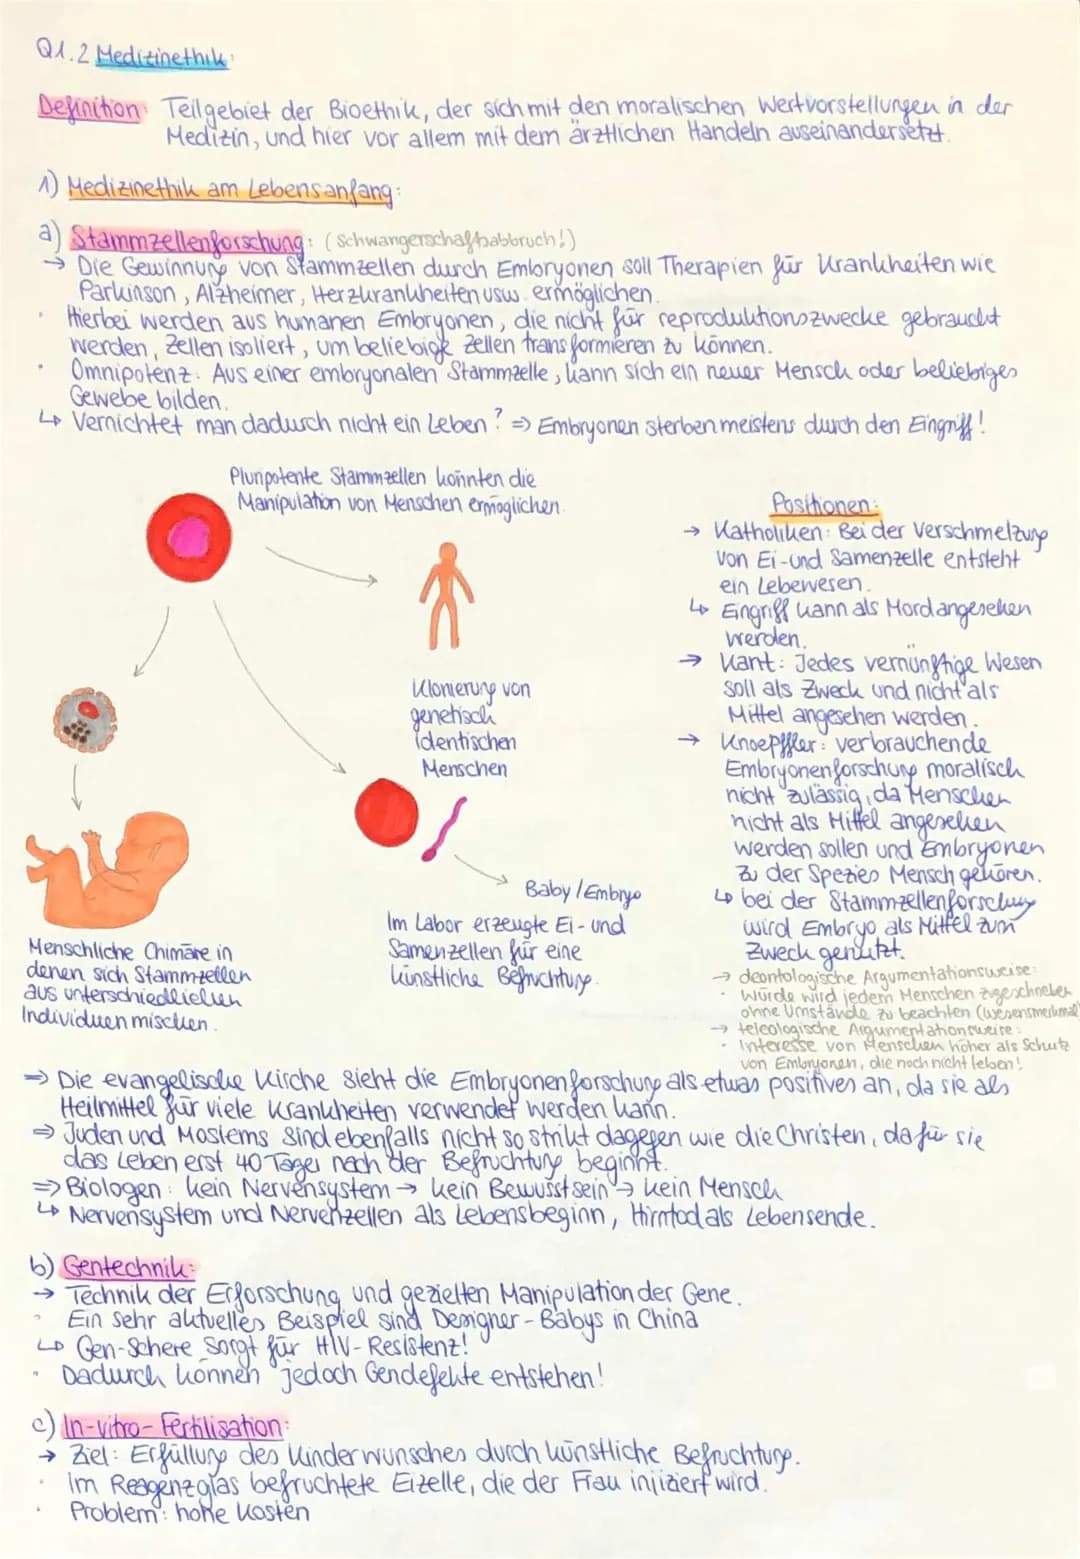 Q1.2 Medizinethik:
Definition: Teilgebiet der Bioethik, der sich mit den moralischen Wertvorstellungen in der
Medizin, und hier vor allem mit dem ärztlichen Handeln auseinandersetzt.
1) Medizinethik am Lebensanfang:
a) Stammzellenforschung: (Schwangerschaftsabbruch!)
→ Die Gewinnung von Stammzellen durch Embryonen soll Therapien für Krankheiten wie
Parkinson, Alzheimer, Herzkrankheiten usw. ermöglichen.
· Hierbei werden aus humanen Embryonen, die nicht für reproduktionszwecke gebraucht
werden, Zellen isoliert, um beliebige Zellen transformieren zu können.
· Omnipotenz: Aus einer embryonalen Stammzelle, kann sich ein neuer Mensch oder beliebiges
Gewebe bilden.
↳ Vernichtet man dadurch nicht ein Leben? ⇒ Embryonen sterben meistens durch den Eingriff!
Pluripotente Stammzellen könnten die
Manipulation von Menschen ermöglichen.
Klonierung von
genetisch
identischen
Menschen
Baby / Embryo
Im Labor erzeugte Ei- und
Samenzellen für eine
künstliche Befruchtung.
Menschliche Chimäre in
denen sich Stammzellen
aus unterschiedlichen
Individuen mischen.
Positionen:
→ Katholiken: Bei der Verschmelzung
von Ei- und Samenzelle entsteht
ein Lebewesen.
↳ Eingriff kann als Mord angesehen
werden.
→ Kant: Jedes vernünftige Wesen
soll als Zweck und nicht als
Mittel angesehen werden.
→ Knoepffler: verbrauchende
Embryonenforschung moralisch
nicht zulässig, da Menschen
nicht als Mittel angesehen
werden sollen und Embryonen
zu der Spezies Mensch gehören.
↳ bei der Stammzellenforschung
wird Embryo als Mittel zum
Zweck genutzt.
→ deontologische Argumentationsweise:
· Würde wird jedem Menschen zugeschrieben
ohne Umstände zu beachten (wesensmerkmal)
→ teleologische Argumentationsweise:
· Interesse von Menschen höher als Schutz
von Embryonen, die noch nicht leben!
⇒ Die evangelische Kirche sieht die Embryonenforschung als etwas positives an, da sie als
Heilmittel für viele Krankheiten verwendet werden kann.
⇒ Juden und Moslems sind ebenfalls nicht so strikt dagegen wie die Christen, da für sie
das Leben erst 40 Tage nach der Befruchtung beginnt.
⇒ Biologen: kein Nervensystem → kein Bewusstsein → kein Mensch
↳ Nervensystem und Nervenzellen als Lebensbeginn, Hirntod als Lebensende.
b) Gentechnik:
→ Technik der Erforschung und gezielten Manipulation der Gene.
· Ein sehr aktuelles Beispiel sind Designer-Babys in China
↳ Gen-Schere sorgt für HIV-Resistenz!
· Dadurch können jedoch Gendefekte entstehen!
c) In-vitro-Fertilisation:
→ Ziel: Erfüllung des Kinderwunsches durch künstliche Befruchtung.
· im Reagenzglas befruchtete Eizelle, die der Frau injiziert wird.
· Problem: hohe Kosten